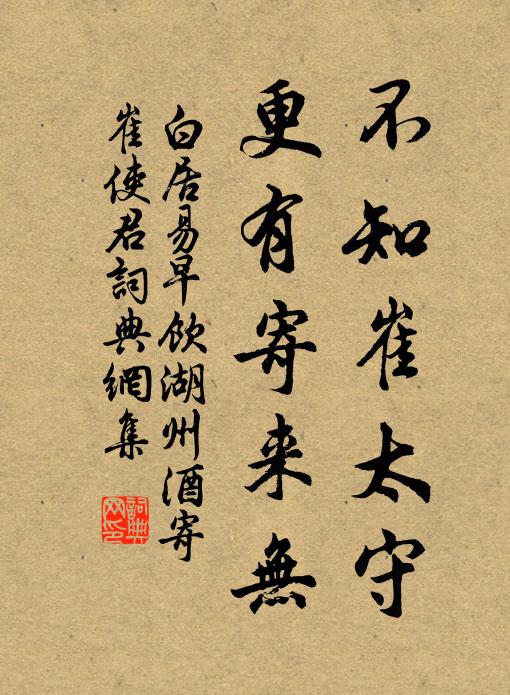 不知崔太守
更有寄来無
白居易早飲湖州酒寄
崔使君詞典網集
詞典
网印